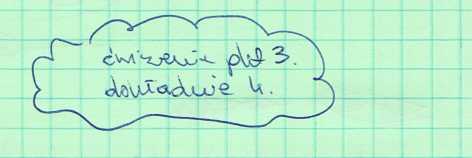 ćwiczenie plik 3.
dokładnie 4.